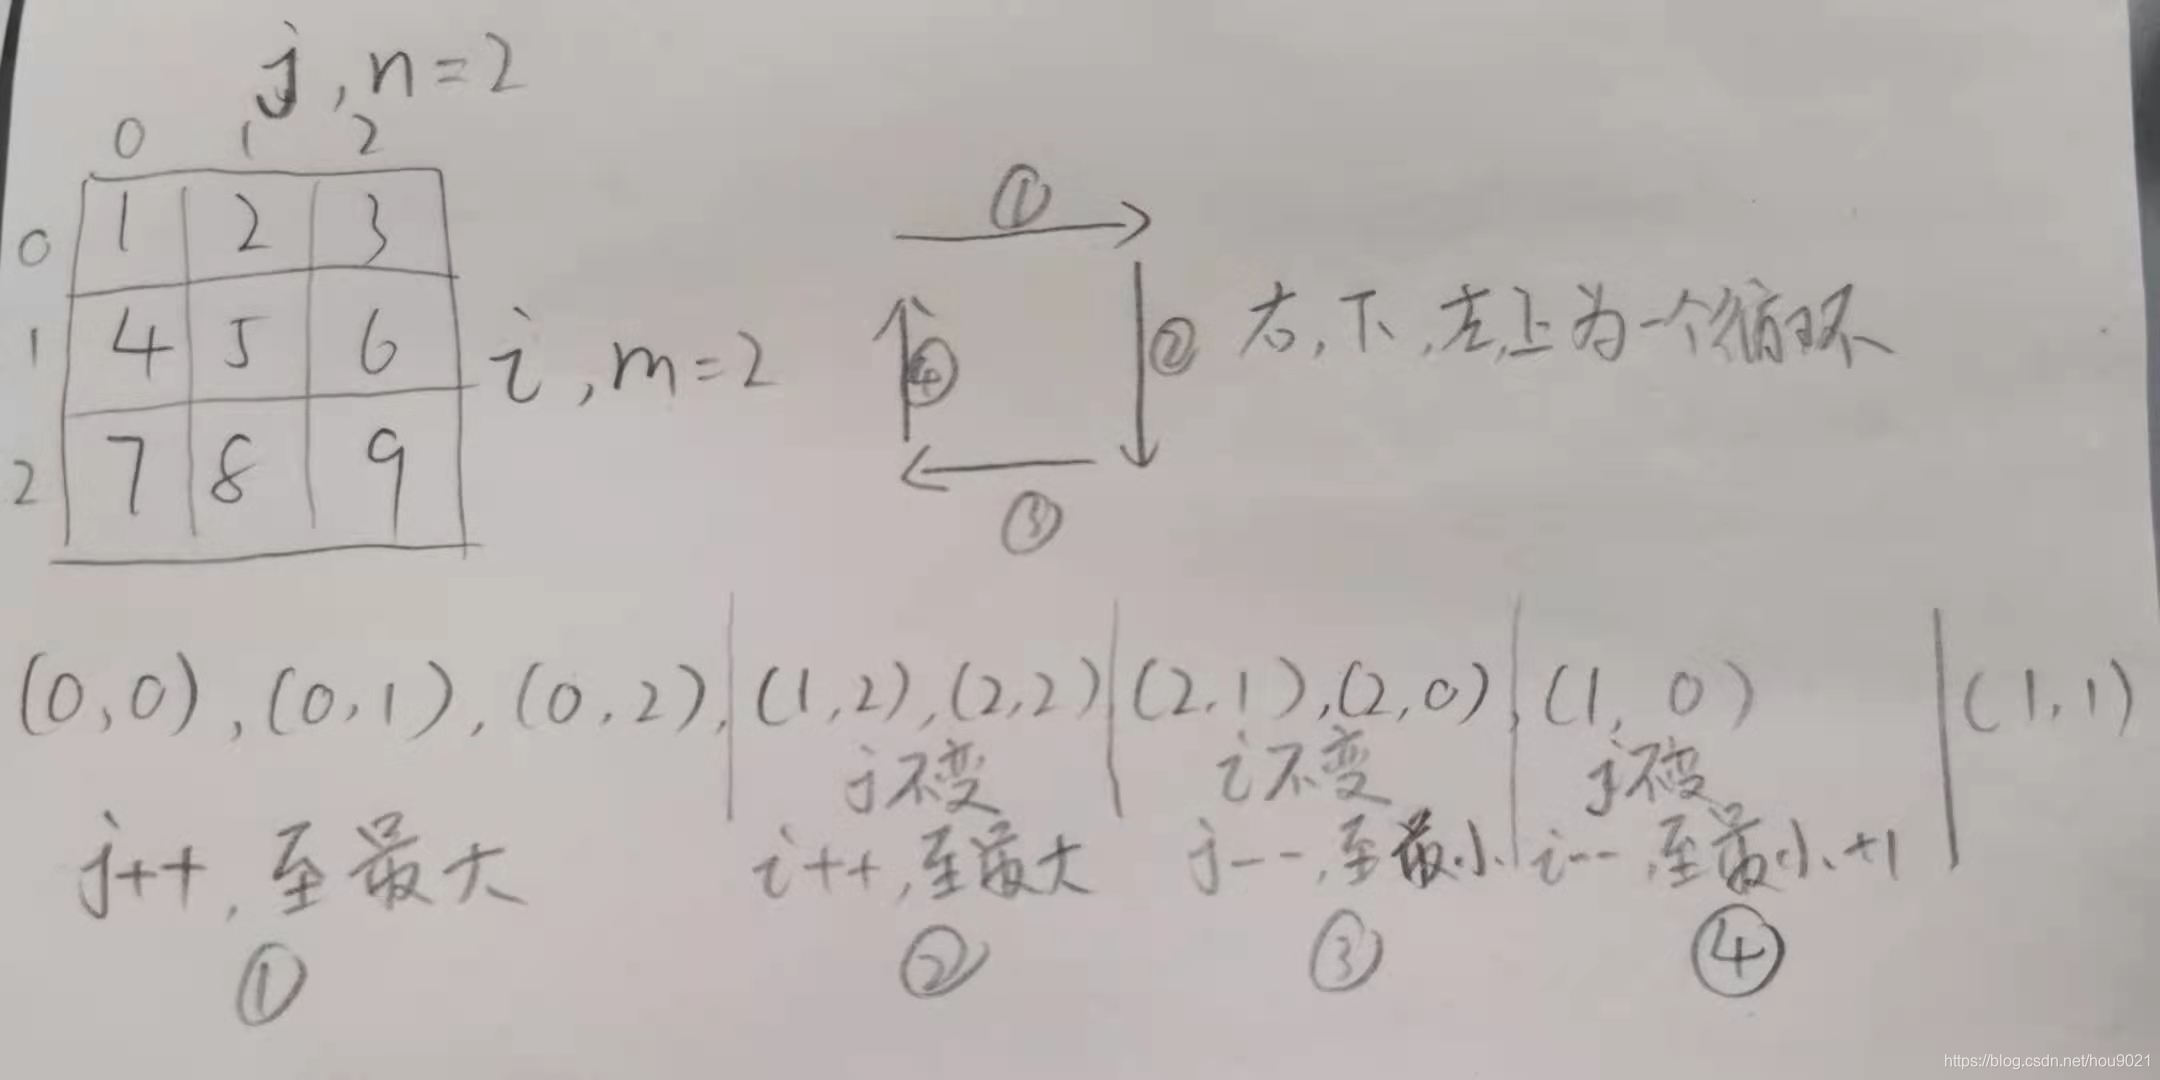 j,n=2
0 1 2
0 1 2 3
1 4 5 6
2 7 8 9
i,m=2
①
②
③
④
右,下,左,上为一个循环
(0,0),(0,1),(0,2),|(1,2),(2,2)|(2,1),(2,0),|(1,0)|(1,1)
j不变 i不变 j不变
j++,至最大 i++,至最大 j--,至最小 i--,至最小+1
① ② ③ ④
https://blog.csdn.net/hou9021